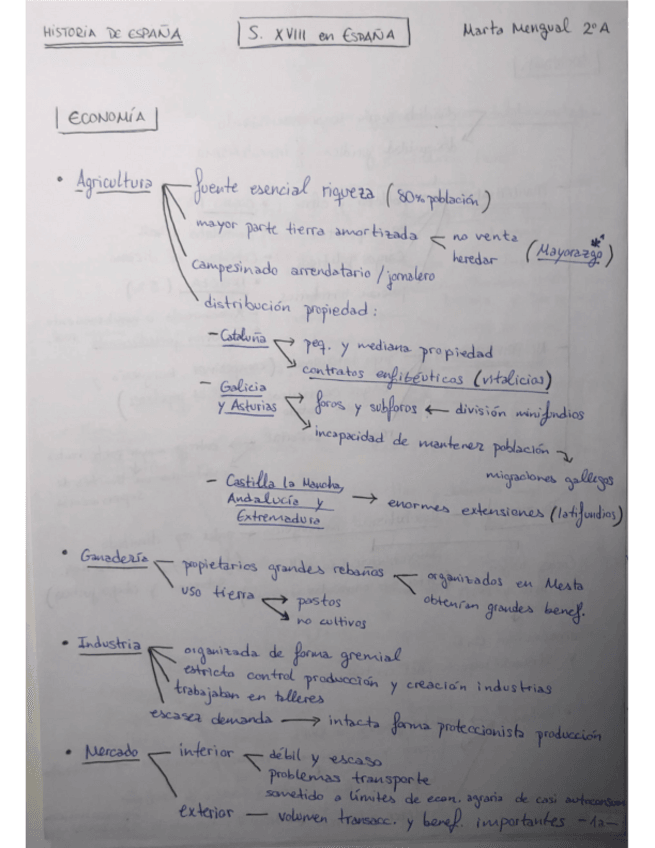 HISTORIA DE ESPAÑA
S. XVIII en ESPAÑA
Marta Mengual 2ºA
ECONOMÍA
• Agricultura
fuente esencial riqueza (80% población)
mayor parte tierra amortizada
no venta
heredar
(Mayorazgo*)
campesinado arrendatario / jornalero
distribución propiedad:
- Cataluña → peq. y mediana propiedad
→ contratos enfibéuticos (vitalicios)
- Galicia
y Asturias → foros y subforos ← división minifundios
→ incapacidad de mantener población →
migraciones gallegos
- Castilla la Mancha,
Andalucía y → enormes extensiones (latifundios)
Extremadura
• Ganadería
propietarios grandes rebaños
organizados en Mesta
obtenían grandes benef.
uso tierra → pastos
→ no cultivos
• Industria
organizada de forma gremial
estricto control producción y creación industrias
trabajaban en talleres
escasez demanda → intacta forma proteccionista producción
• Mercado
interior
débil y escaso
problemas transporte
sometido a límites de econ. agraria de casi autoconsumo
exterior — volumen transacc. y benef. importantes -1a-